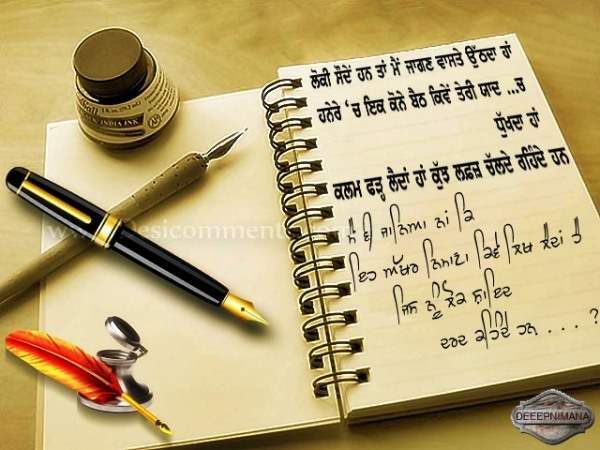 ਲੋਕੀ ਸੌਂਦੇ ਹਨ ਤਾਂ ਮੈਂ ਜਾਗਣ ਵਾਸਤੇ ਉੱਠਦਾ ਹਾਂ
ਹਨੇਰੇ 'ਚ ਇਕ ਕੋਨੇ ਬੈਠ ਕਿਵੇਂ ਤੇਰੀ ਯਾਦ ...ਚ
ਧੁੱਖਦਾ ਹਾਂ
ਕਲਮ ਫੜ੍ਹ ਲੈਂਦਾ ਹਾਂ ਕੁੱਝ ਲਫ਼ਜ਼ ਚੱਲਦੇ ਰਹਿੰਦੇ ਹਨ
ਮੈਂ ਵੀ ਜਾਣਿਆ ਨਾਂ ਕਿ
ਇਹ ਅੱਖਰ ਨਿਮਾਣਾ ਕਿਵੇਂ ਲਿਖ ਲੈਂਦਾਂ ਹੈ
ਜਿਸ ਨੂੰ ਲੋਕ ਸ਼ਾਇਦ
ਦਰਦ ਕਹਿੰਦੇ ਹਨ . . . . ?
INDIA INK
DEEEPNIMANA